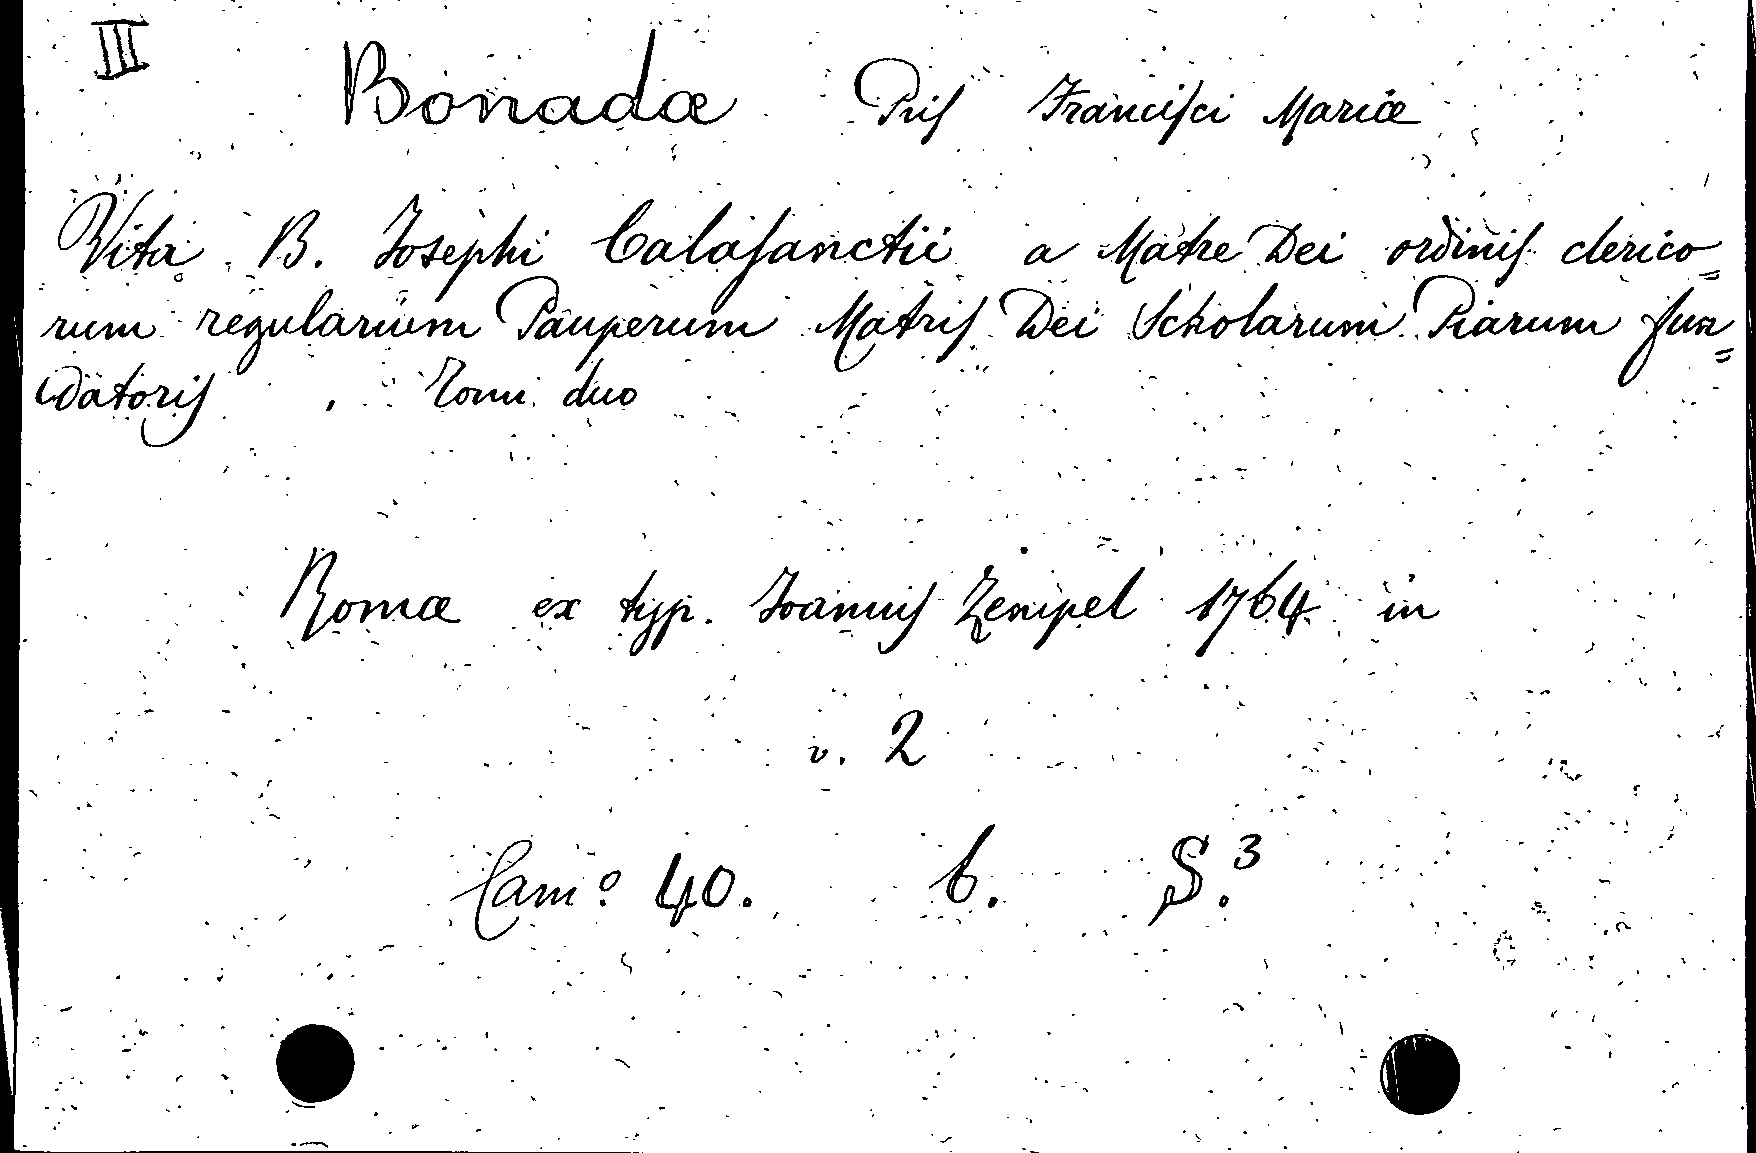 III
Bonadæ Pris Francisci Mariæ
Vita B. Josephi Calasanctii a Matre Dei ordinis clerico=
rum regularium Pauperum Matris Dei Scholarum Piarum fun=
datoris , Tomi duo
Romæ ex typ. Joannis Zempel 1764 in
v. 2
Cam.º 40. 6. S.³